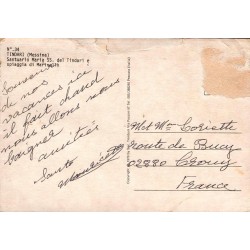 N° 34
TINDARI (Messina)
Santuario Maria SS. del Tindari e
spiaggia di Marinello
Souvenir
de nos
vacances ici
il fait chaud
nous allons nous
baigner
amitiés
Santo
Mr et Me
route de Bucy
02880 Crouy
France